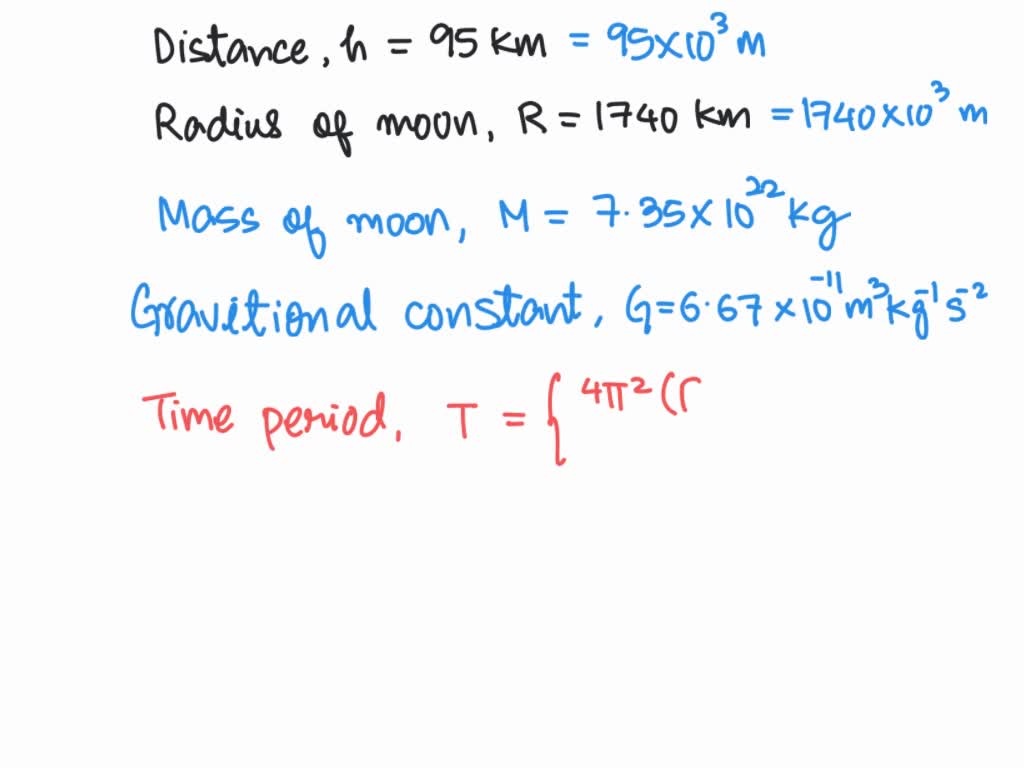 Distance, h = 95 km = 95×10³ m
Radius of moon, R = 1740 km = 1740×10³ m
Mass of moon, M = 7.35×10²² kg
Gravitional constant, G = 6.67×10⁻¹¹ m³ kg⁻¹ s⁻²
Time period, T = { 4π² (r